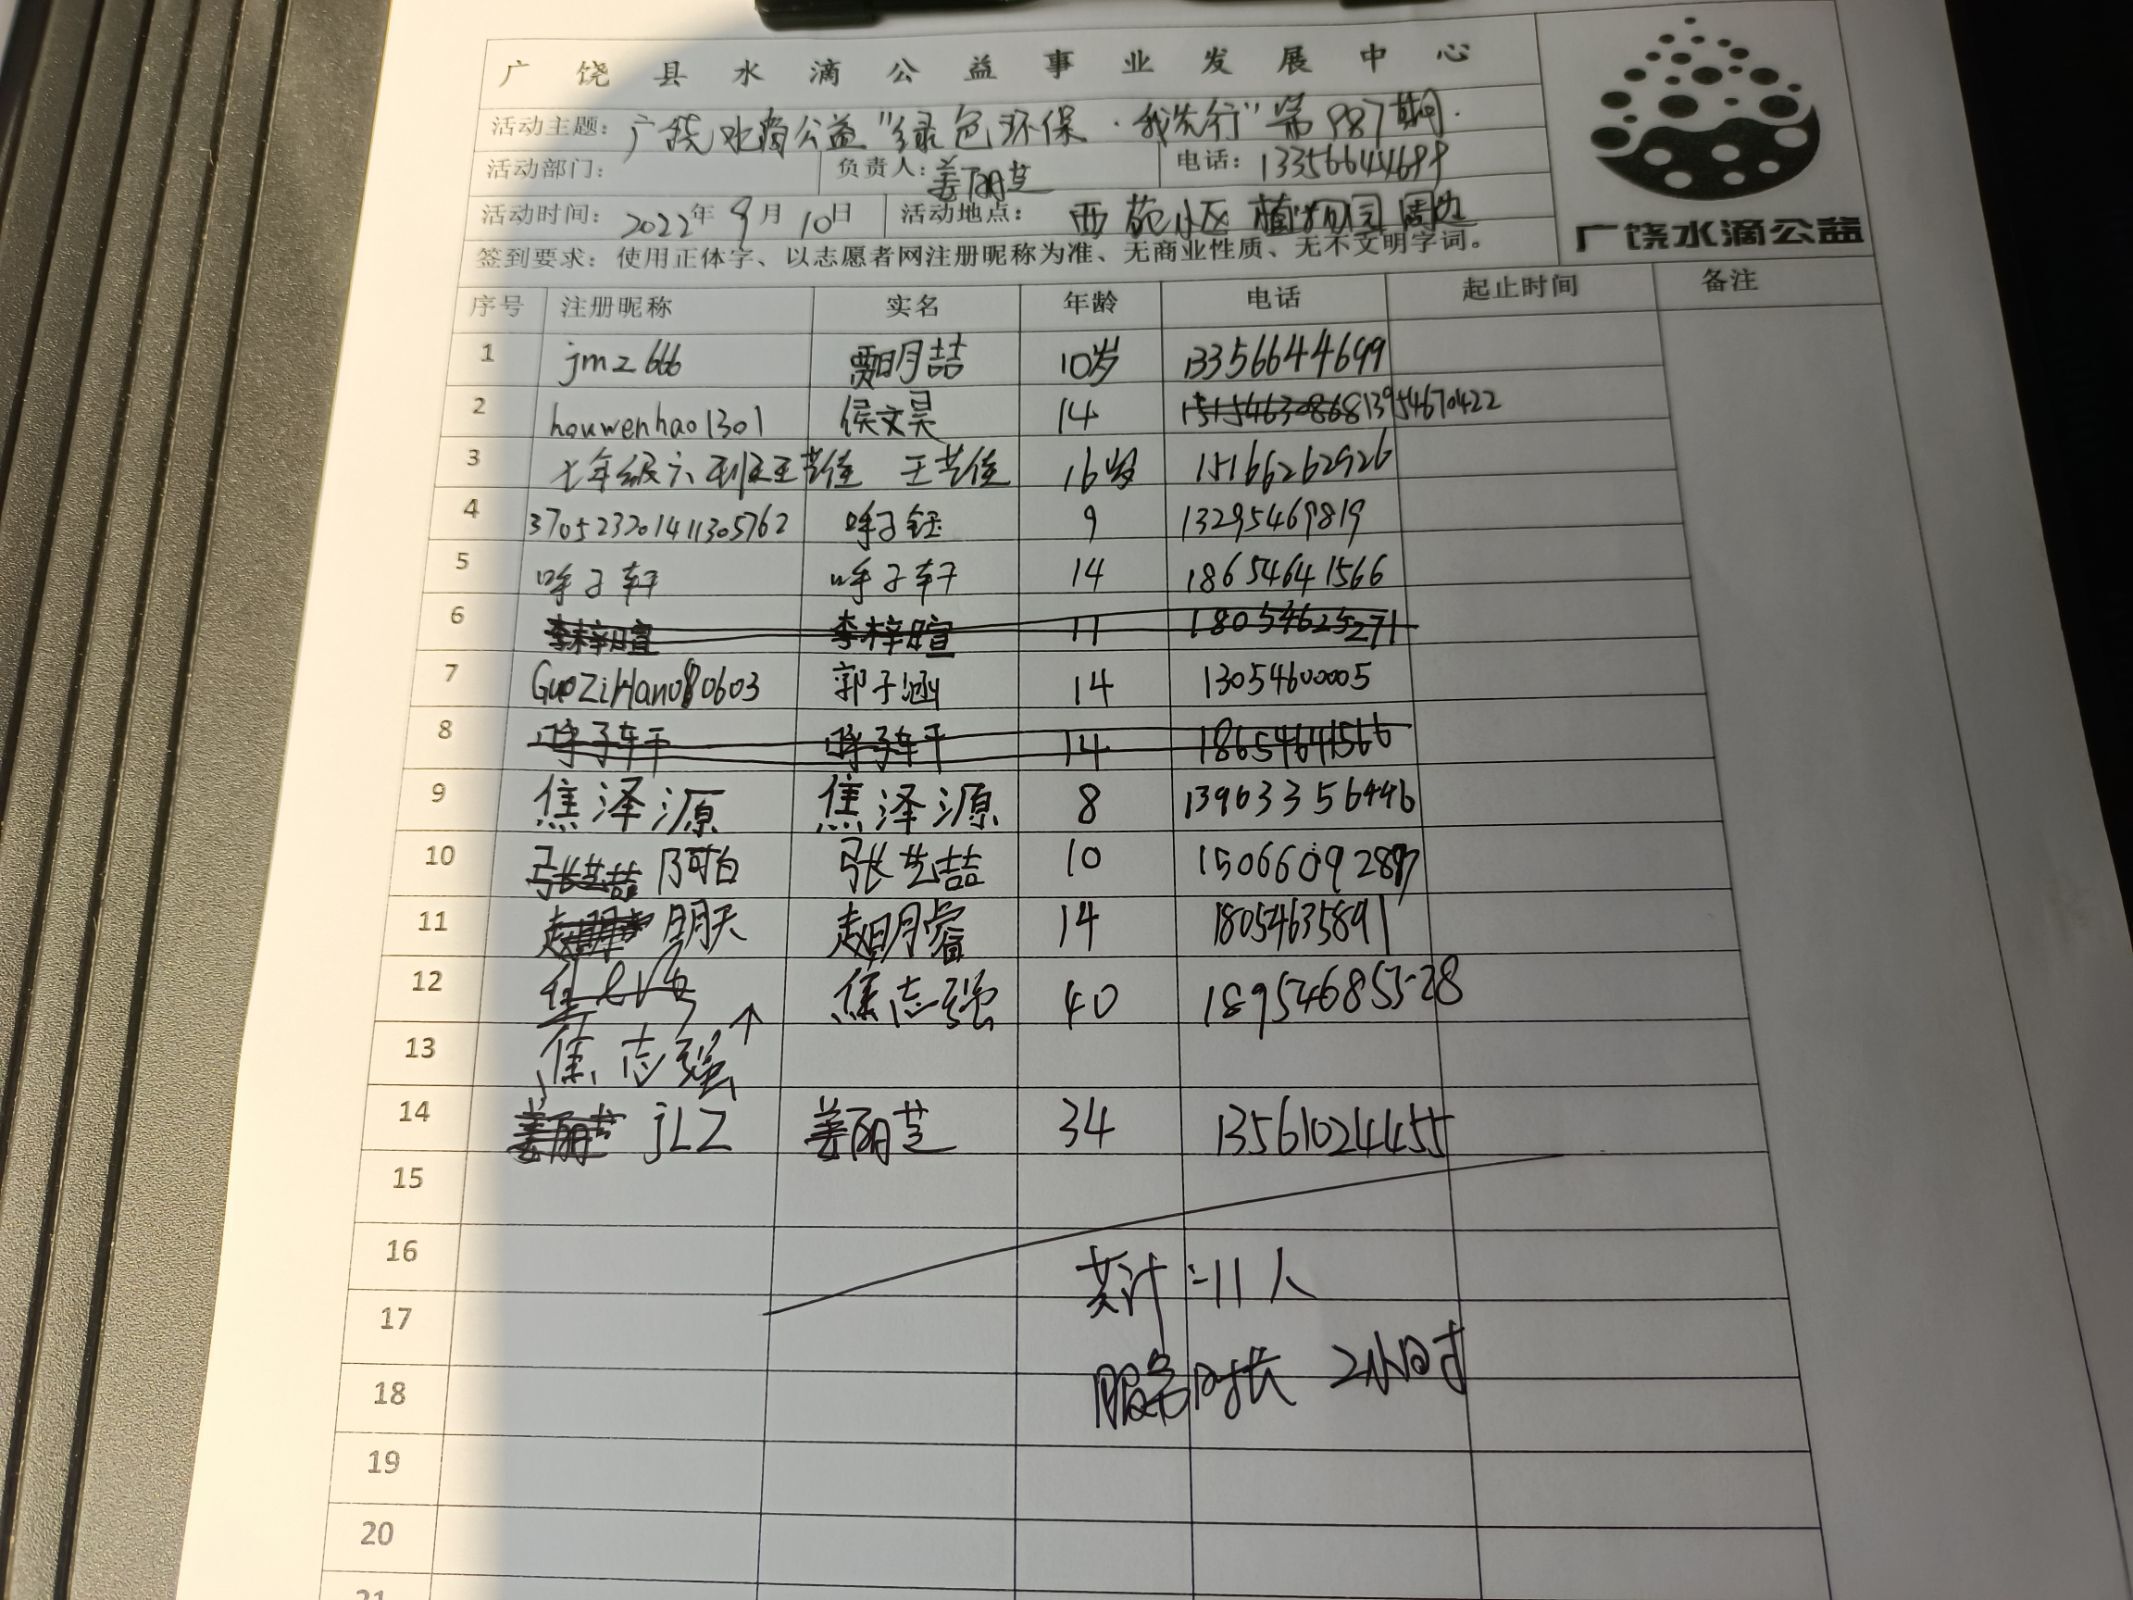 广饶县水滴公益事业发展中心
活动主题：广饶水滴公益"绿色环保·我先行"第987期.
活动部门： 负责人：姜丽芝 电话：13356644699
活动时间：2022年9月10日 活动地点：西苑小区 植物园周边
签到要求：使用正体字、以志愿者网注册昵称为准、无商业性质、无不文明字词。
广饶水滴公益
序号 注册昵称 实名 年龄 电话 起止时间 备注
1 jmz666 贾明喆 10岁 13356644699
2 houwenhao1301 侯文昊 14 15154630868 13954670422
3 七年级六班王艺佳 王艺佳 16岁 15166262926
4 370523201411305762 呼子钰 9 13295469819
5 呼子轩 呼子轩 14 18654641566
6 李梓暄 李梓暄 11 18054625271
7 GuoZiHan080603 郭子涵 14 13054600005
8 呼子轩 呼子轩 14 18654641566
9 焦泽源 焦泽源 8 13963356446
10 张艺喆 阿白 张艺喆 10 15066092897
11 明天 赵明睿 14 18054635891
12 焦志强 40 18954685528
13 焦志强 ↑
14 姜丽芝 jLZ 姜丽芝 34 13561024455
15
16 共计：11人
17
18 服务时长 2小时
19
20
21